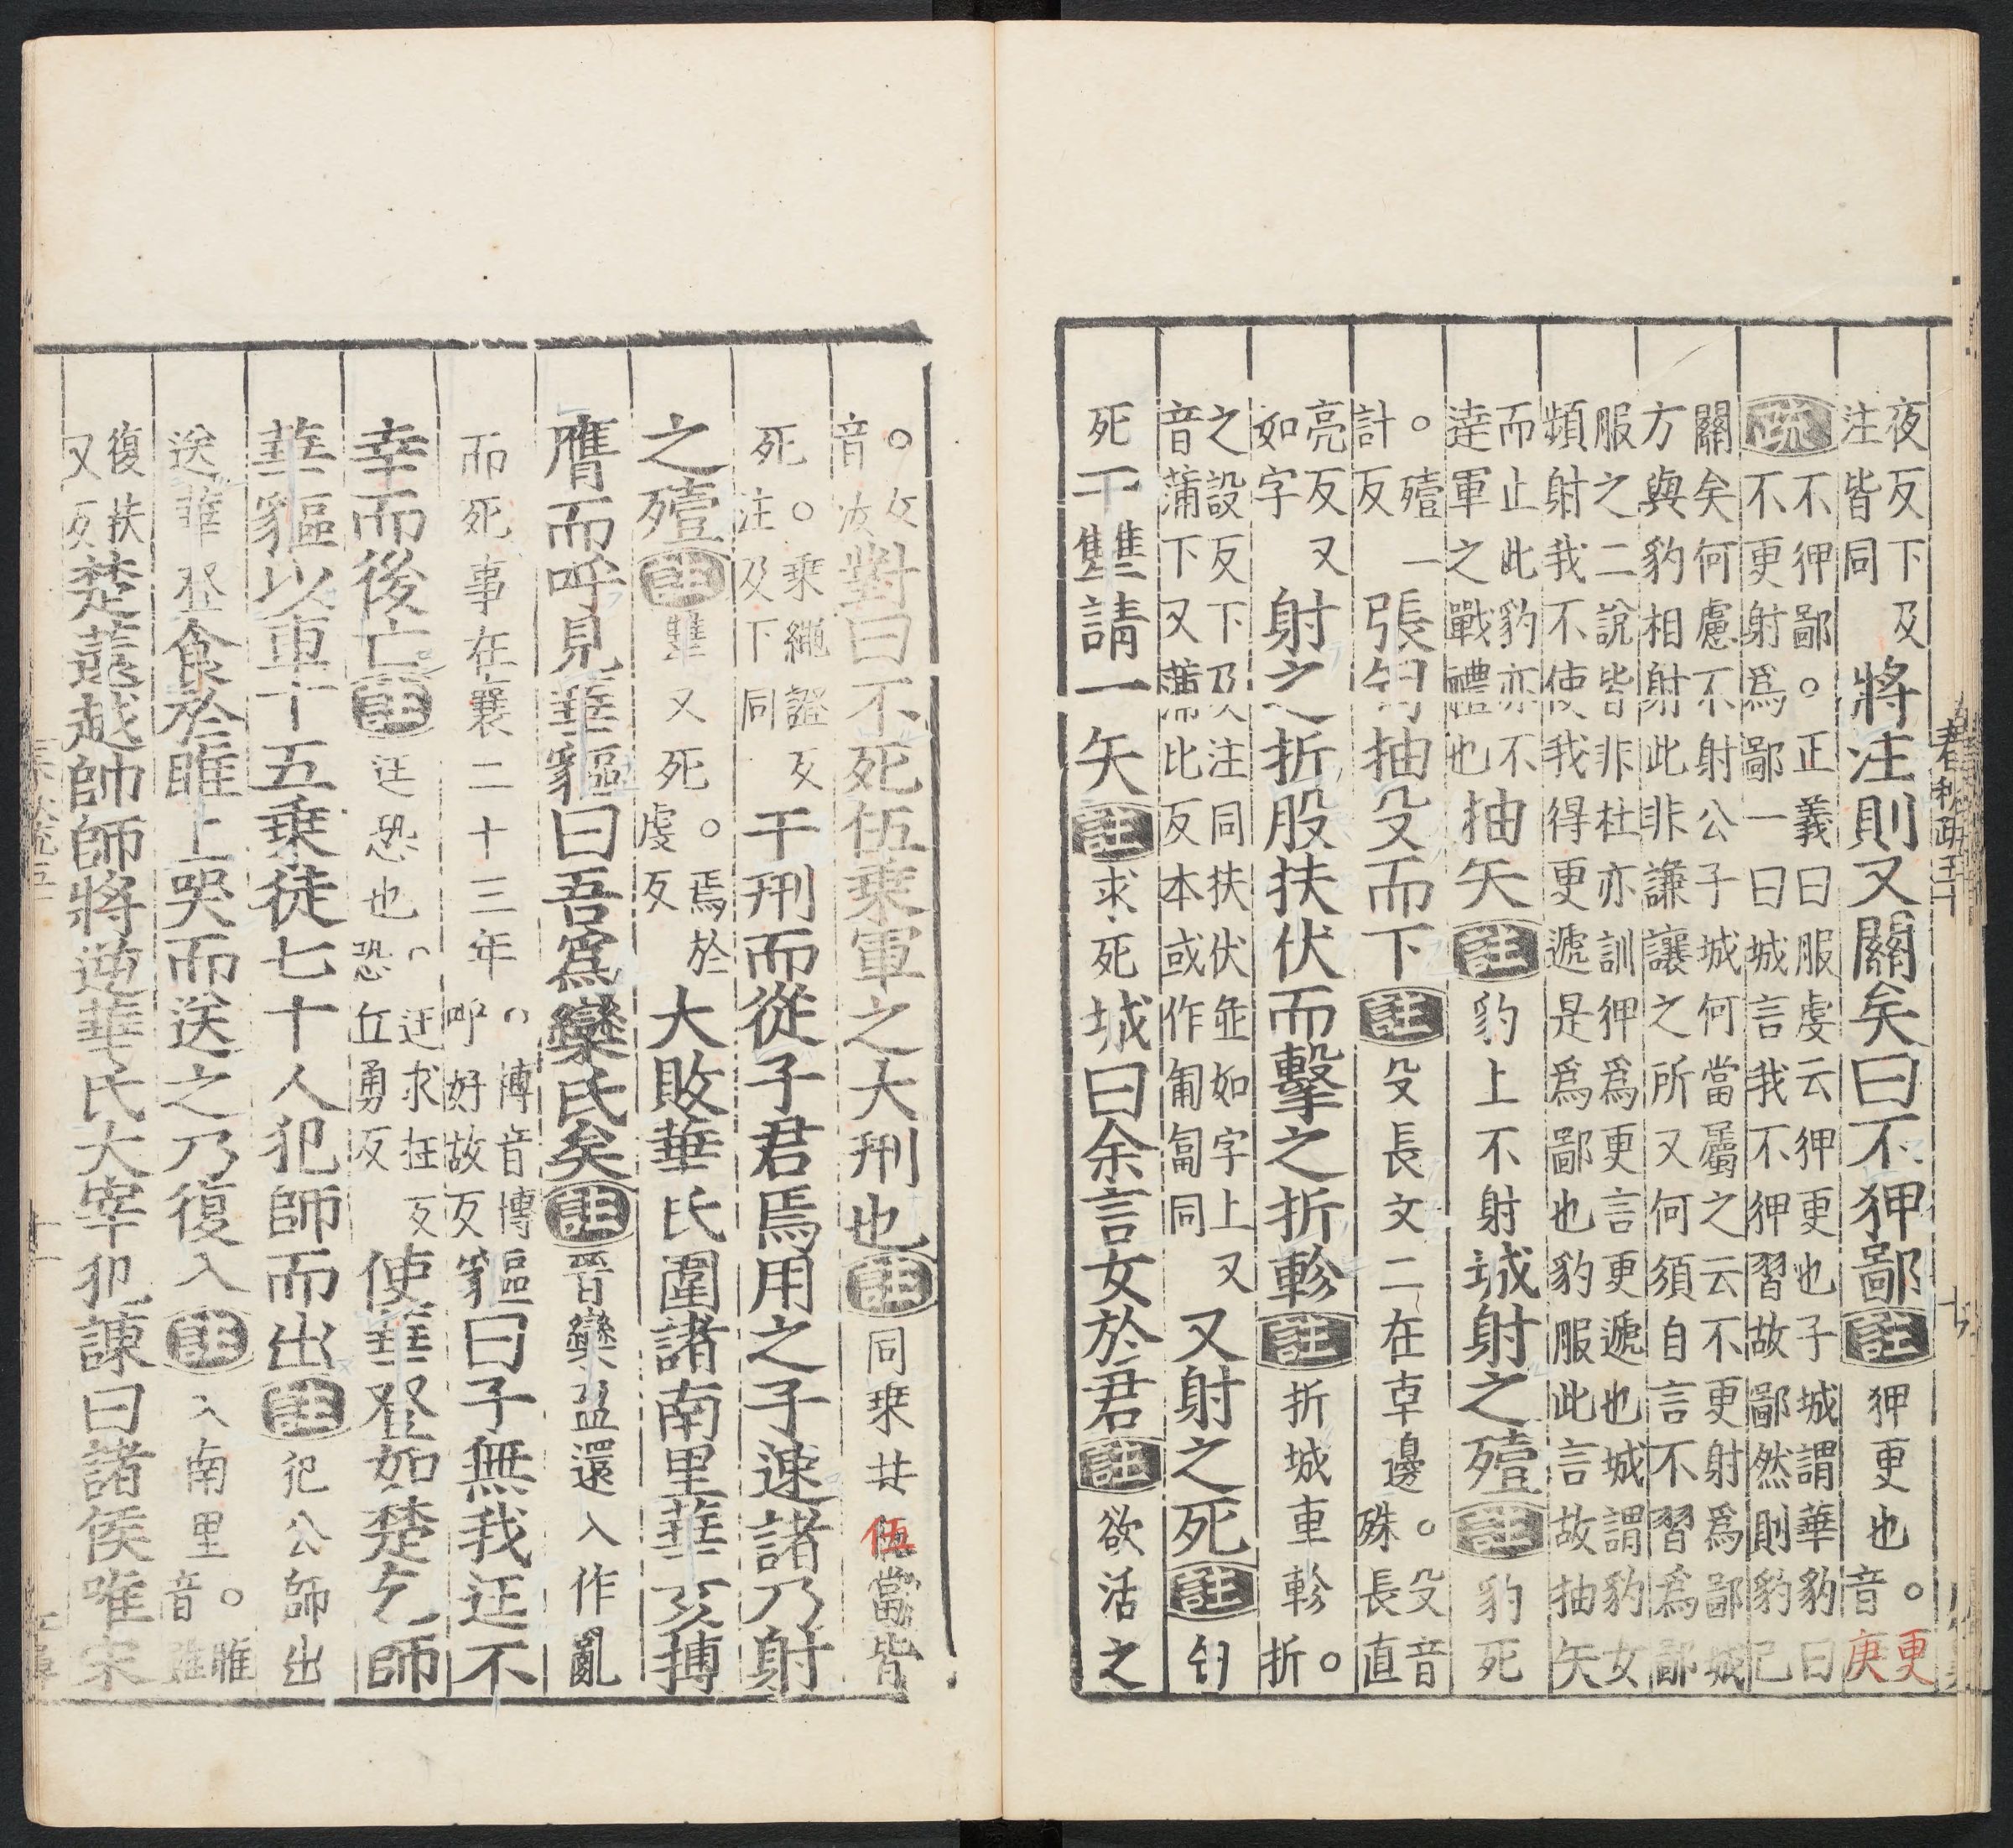 夜反下及
注皆同
將注則又關矣曰不狎鄙
註
狎更也
。更
音庚
疏
不狎鄙。正義曰服虔云狎更也子城謂華豹曰
不更射爲鄙一曰城言我不狎習故鄙然則豹已
關矣何慮不射公子城何當屬之云不更射爲鄙城
方與豹相射此非謙讓之所又何須自言不習爲鄙
服之二說皆非杜亦訓狎爲更言更遞也城謂豹女
頻射我不使我得更遞是爲鄙也豹服此言故抽矢
而止此豹亦不
達軍之戰禮也
抽矢
註
豹上不射
城射之殪
註
豹死
。殪一
計反
張匄抽殳而下
註
殳長丈二在車邊
。殳音
殊長直
亮反又
如字
射之折股扶伏而擊之折軫
註
折城車軫
。
折
之設反下及注同扶伏並如字上又
音蒲下又蒲比反本或作匍匐同
又射之死
註
匄
死干犨請一矢
註
求死
城曰余言女於君
註
欲活之
。女
音汝
對曰不死伍乘軍之大刑也
註
同乘共伍當皆
死
。乘繩證反
注及下同
干刑而從子君焉用之子速諸乃射
之殪
註
犨又死
。焉於
虔反
大敗華氏圍諸南里華亥搏
膺而呼見華貙曰吾爲欒氏矣
註
晉欒盈還入作亂
而死事在襄二十三年
。搏音博
呼好故反
貙曰子無我迋不
幸而後亡
註
迋恐也
。迋求枉反
恐丘勇反
使華登如楚乞師
華貙以車十五乘徒七十人犯師而出
註
犯公師出
送華登
食於睢上哭而送之乃復入
註
入南里
。睢
音雖
復扶
又反
楚薳越帥師將逆華氏大宰犯諫曰諸侯唯宋